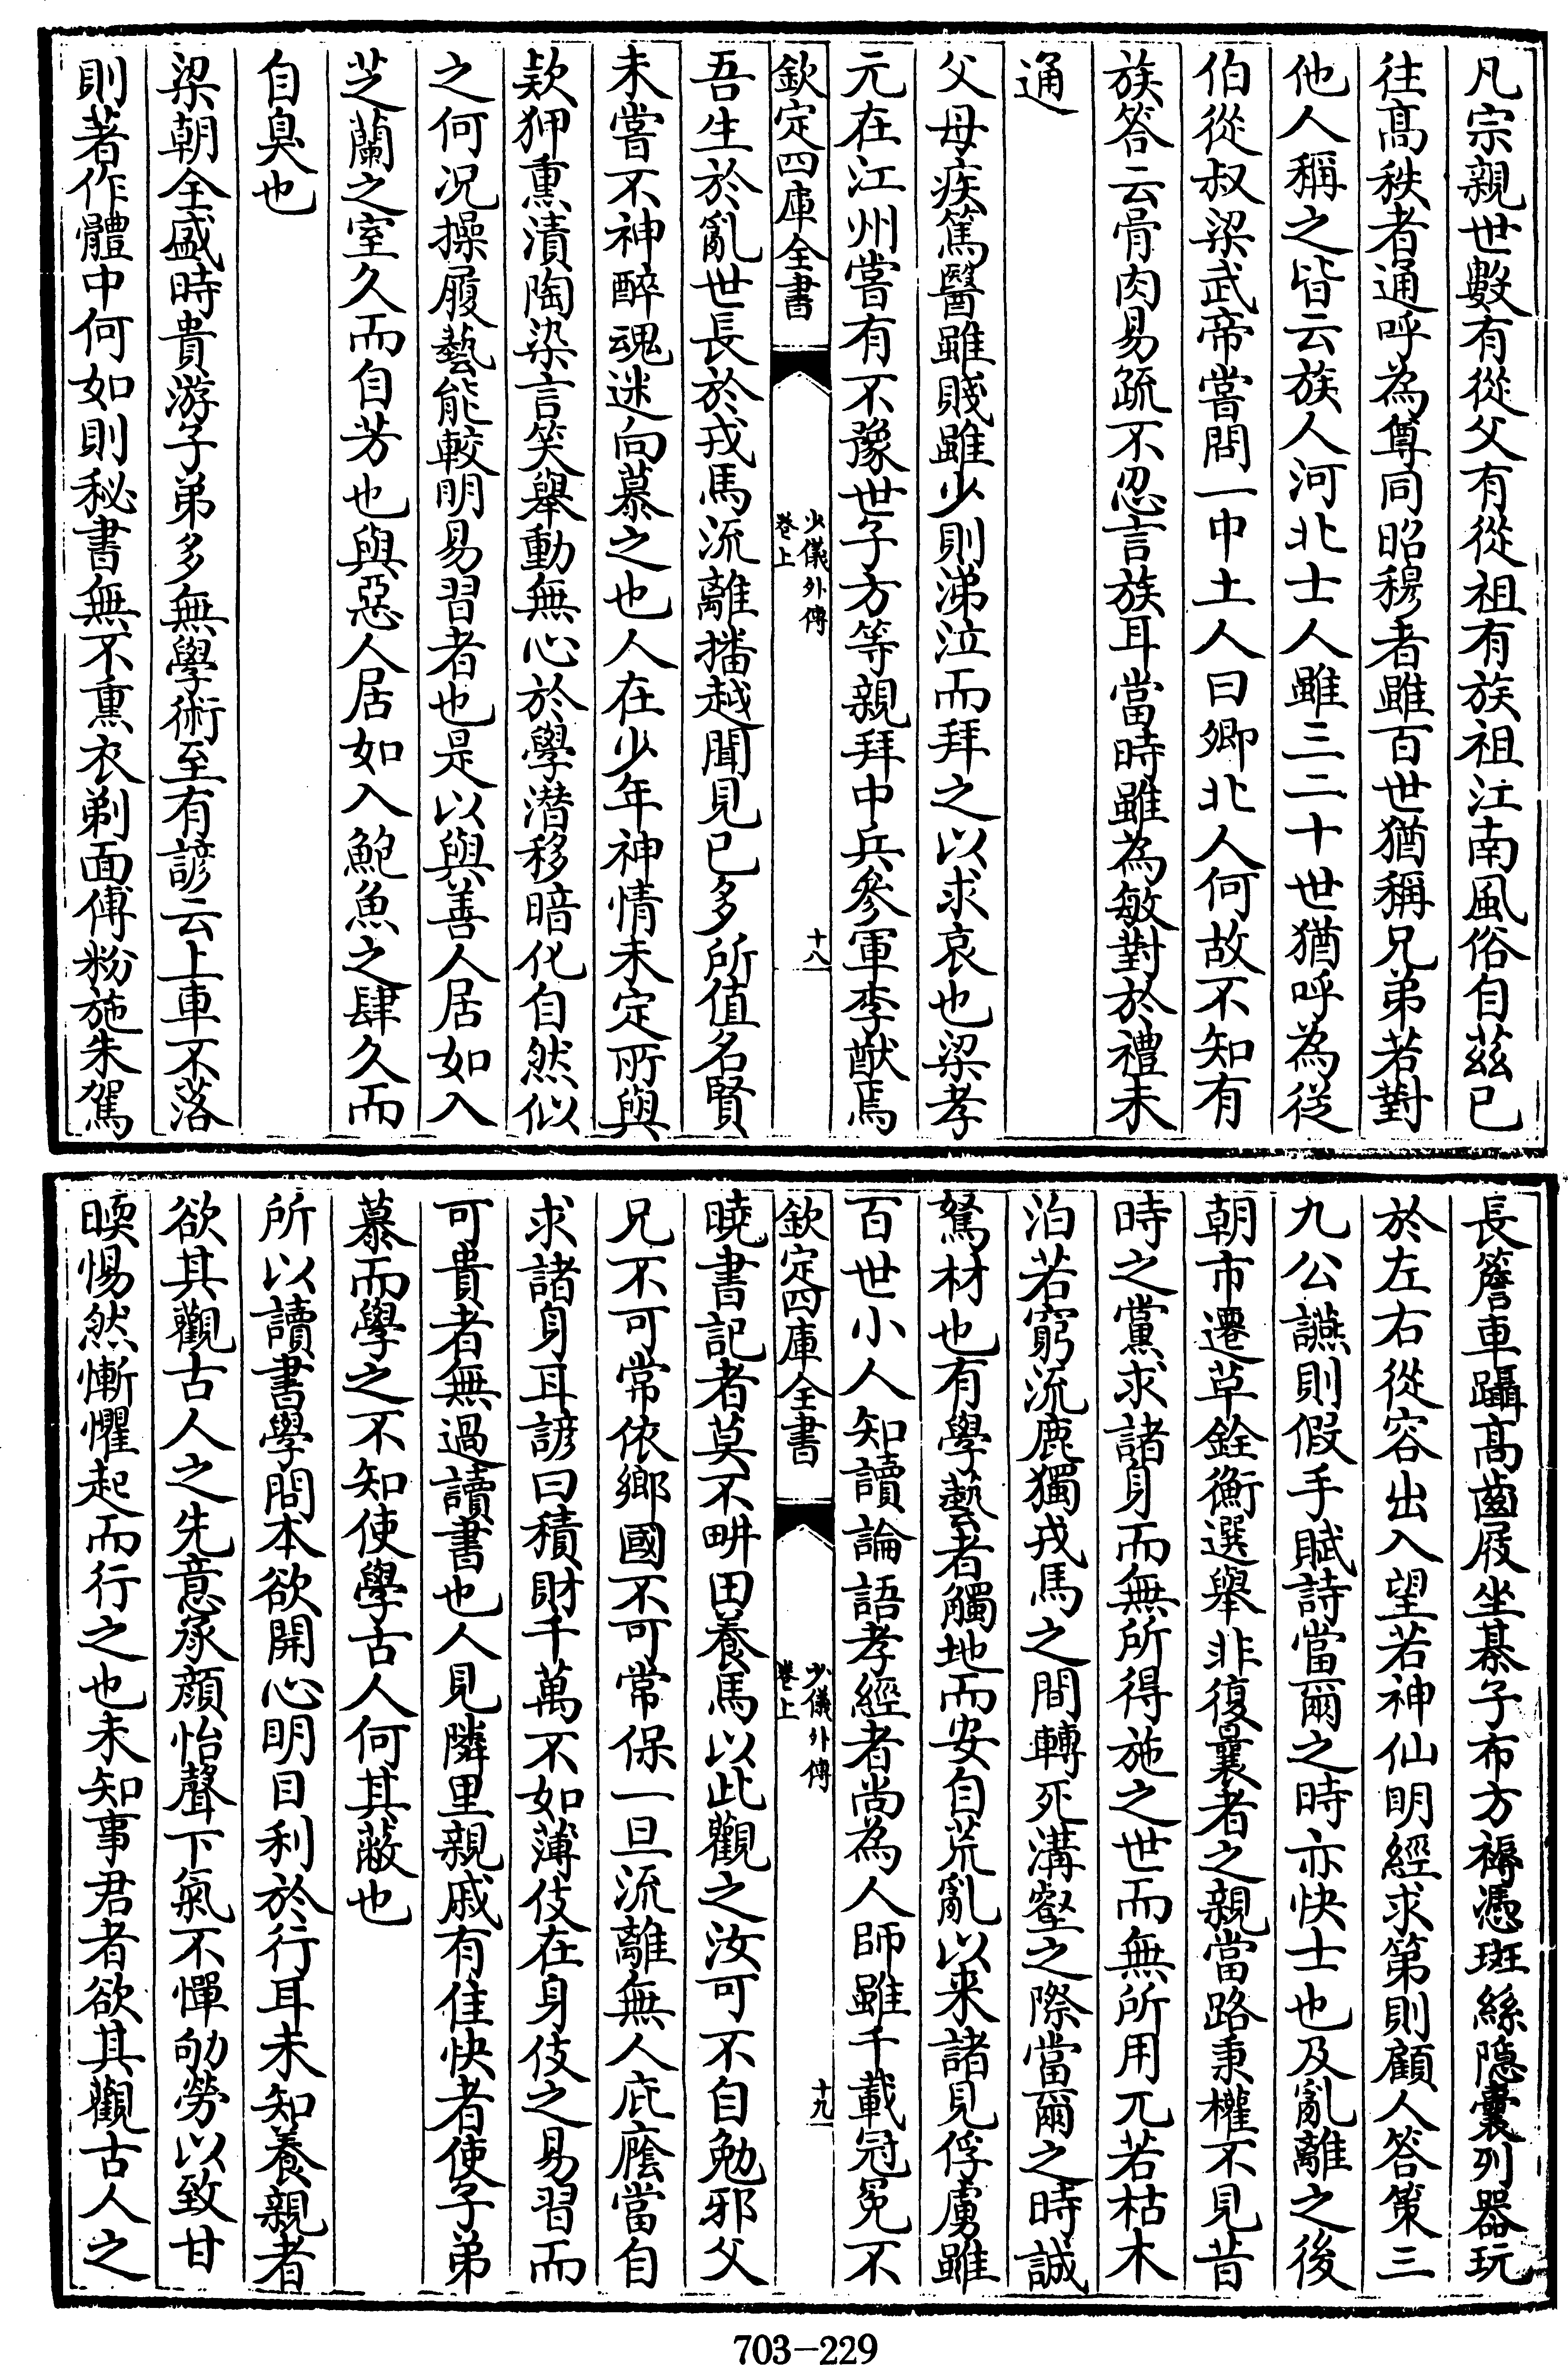 凡宗親世數有從父有從祖有族祖江南風俗自茲已
往髙秩者通呼為尊同昭穆者雖百世猶稱兄弟若對
他人稱之皆云族人河北士人雖三二十世猶呼為從
伯從叔梁武帝嘗問一中土人曰卿北人何故不知有
族答云骨肉易疏不忍言族耳當時雖為敏對於禮未
通
父母疾篤醫雖賤雖少則涕泣而拜之以求哀也梁孝
元在江州嘗有不豫世子方等親拜中兵參軍李猷焉
欽定四庫全書
少儀外傳
卷上
十八
吾生於亂世長於戎馬流離播越聞見已多所值名賢
未嘗不神醉魂迷向慕之也人在少年神情未定所與
欵狎熏漬陶染言笑舉動無心於學潛移暗化自然似
之何况操履藝能較明易習者也是以與善人居如入
芝蘭之室久而自芳也與惡人居如入鮑魚之肆久而
自臭也
梁朝全盛時貴游子弟多無學術至有諺云上車不落
則著作體中何如則秘書無不熏衣剃面傅粉施朱駕
長簷車躡髙齒屐坐棊子布方褥憑斑絲隱囊列器玩
於左右從容出入望若神仙明經求第則顧人答策三
九公讌則假手賦詩當爾之時亦快士也及亂離之後
朝市遷革銓衡選舉非復曩者之親當路秉權不見昔
時之黨求諸身而無所得施之世而無所用兀若枯木
泊若窮流鹿獨戎馬之間轉死溝壑之際當爾之時誠
駑材也有學藝者觸地而安自荒亂以来諸見俘虜雖
百世小人知讀論語孝經者尚為人師雖千載冠冕不
欽定四庫全書
少儀外傳
卷上
十九
曉書記者莫不畊田養馬以此觀之汝可不自勉邪父
兄不可常依鄉國不可常保一旦流離無人庇廕當自
求諸身耳諺曰積財千萬不如薄伎在身伎之易習而
可貴者無過讀書也人見隣里親戚有佳快者使子弟
慕而學之不知使學古人何其蔽也
所以讀書學問本欲開心明目利於行耳未知養親者
欲其觀古人之先意承顔怡聲下氣不憚劬勞以致甘
㬉惕然慚懼起而行之也未知事君者欲其觀古人之
703-229